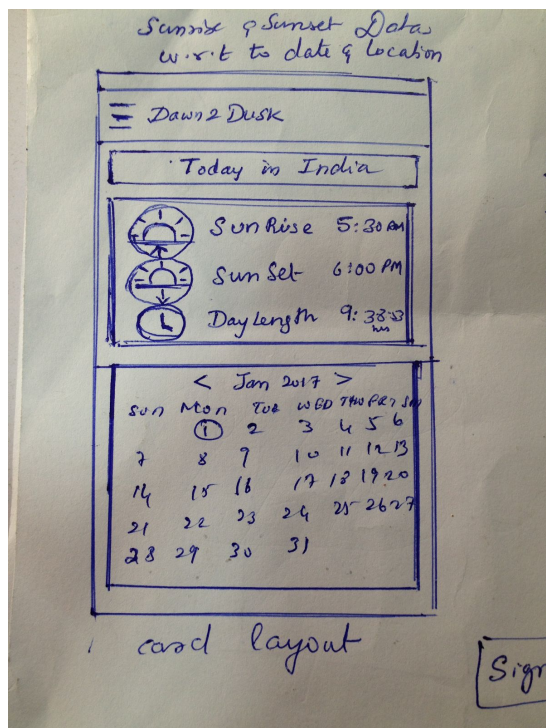 Sunrise & Sunset Data
w.r.t to date & location
Dawn2Dusk
Today in India
SunRise 5:30 AM
Sun Set 6:00 PM
Day Length 9:38:53 hrs
< Jan 2017 >
Sun Mon Tue WED THU FRI SAT
1 2 3 4 5 6
7 8 9 10 11 12 13
14 15 16 17 18 19 20
21 22 23 24 25 26 27
28 29 30 31
card layout
Sign